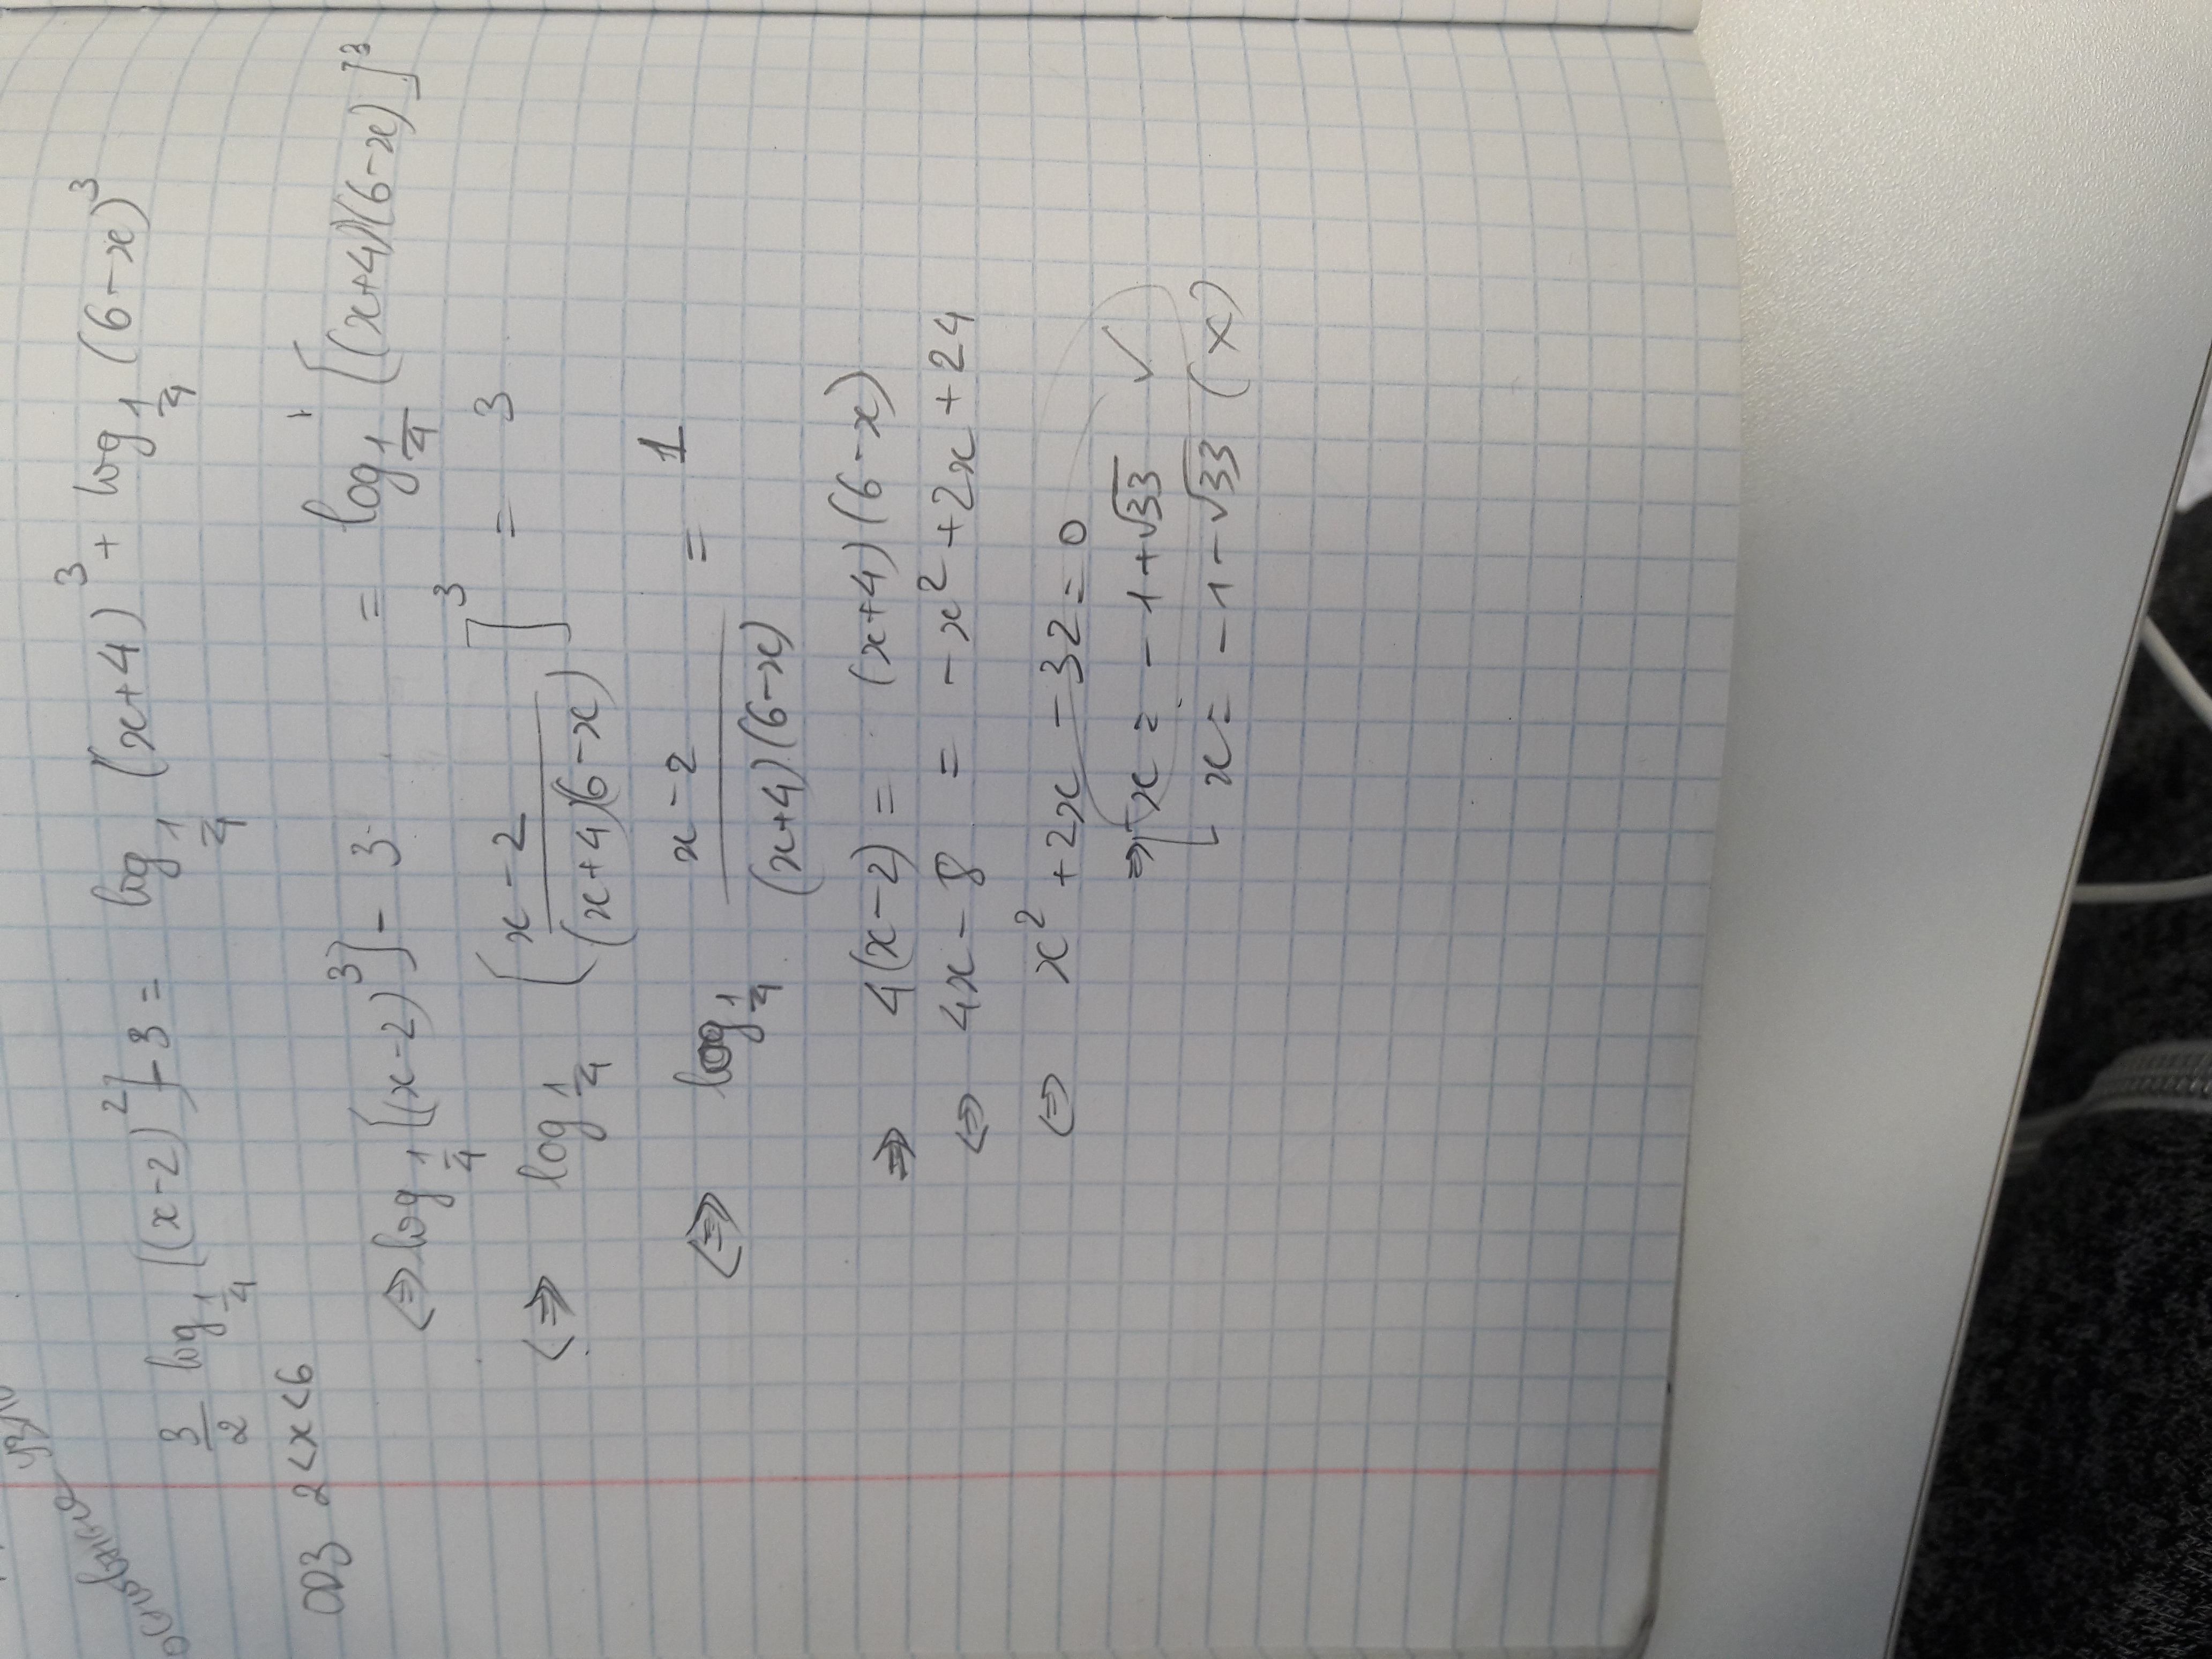 3/2 log_{1/4} [(x-2)^2] - 3 = log_{1/4} (x+4)^3 + log_{1/4} (6-x)^3
ОДЗ 2<x<6
⇔ log_{1/4} [(x-2)^3] - 3 = log_{1/4} [(x+4)(6-x)]^3
⇔ log_{1/4} [(x-2)/((x+4)(6-x))]^3 = 3
⇔ log_{1/4} (x-2)/((x+4)(6-x)) = 1
⇒ 4(x-2) = (x+4)(6-x)
⇔ 4x-8 = -x^2+2x+24
⇔ x^2+2x-32=0
⇒ [x = -1+√33 ✓
[x = -1-√33 (x)